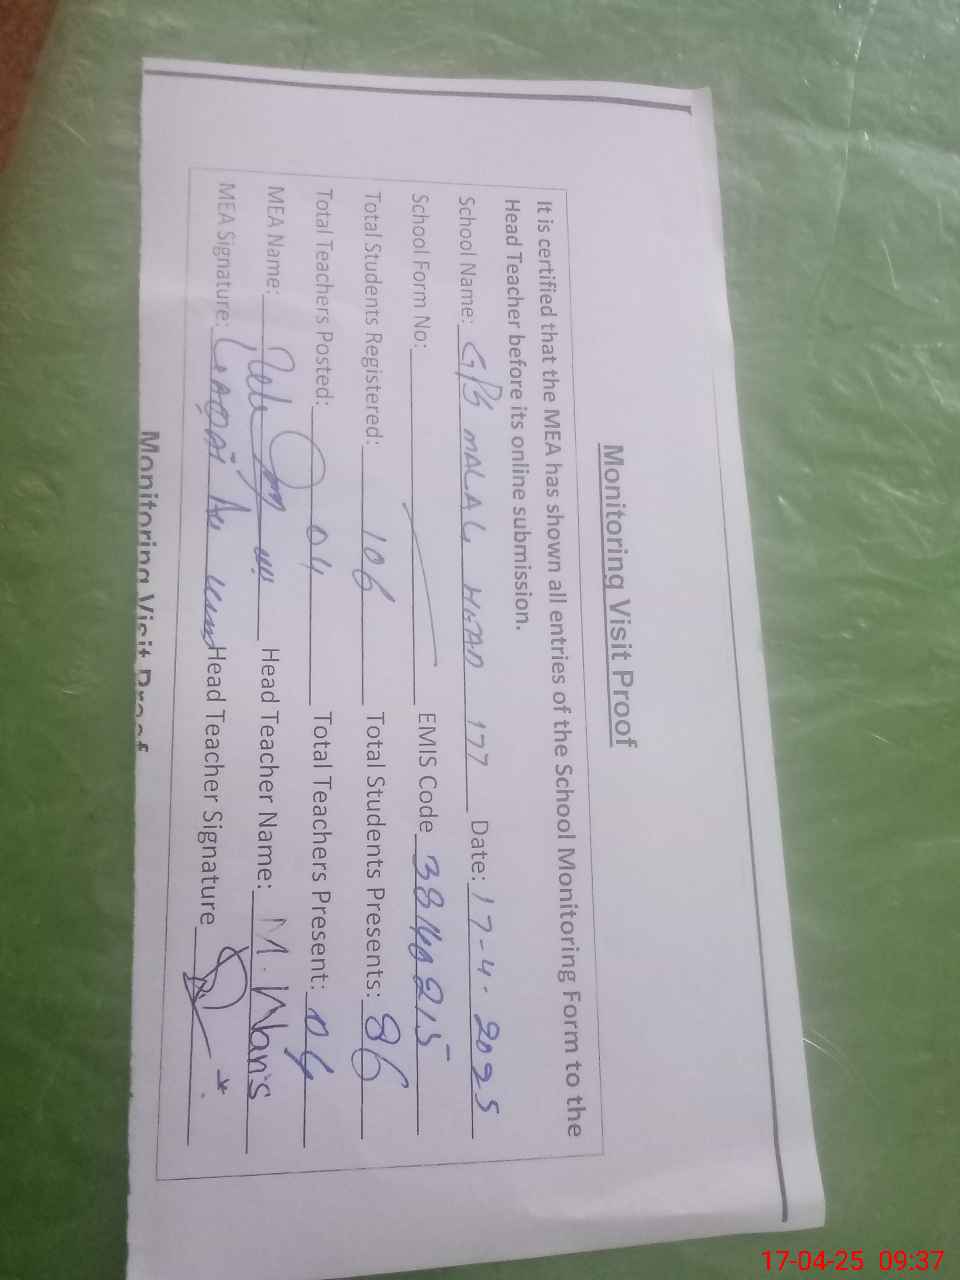 Monitoring Visit Proof
It is certified that the MEA has shown all entries of the School Monitoring Form to the
Head Teacher before its online submission.
School Name: GPS MALAH 177 Date: 17-4-2025
School Form No: EMIS Code 38140215
Total Students Registered: 106 Total Students Presents: 86
Total Teachers Posted: 04 Total Teachers Present: 04
MEA Name: Head Teacher Name: M. Waris
MEA Signature: Head Teacher Signature
Monitoring Visit Proof
17-04-25 09:37